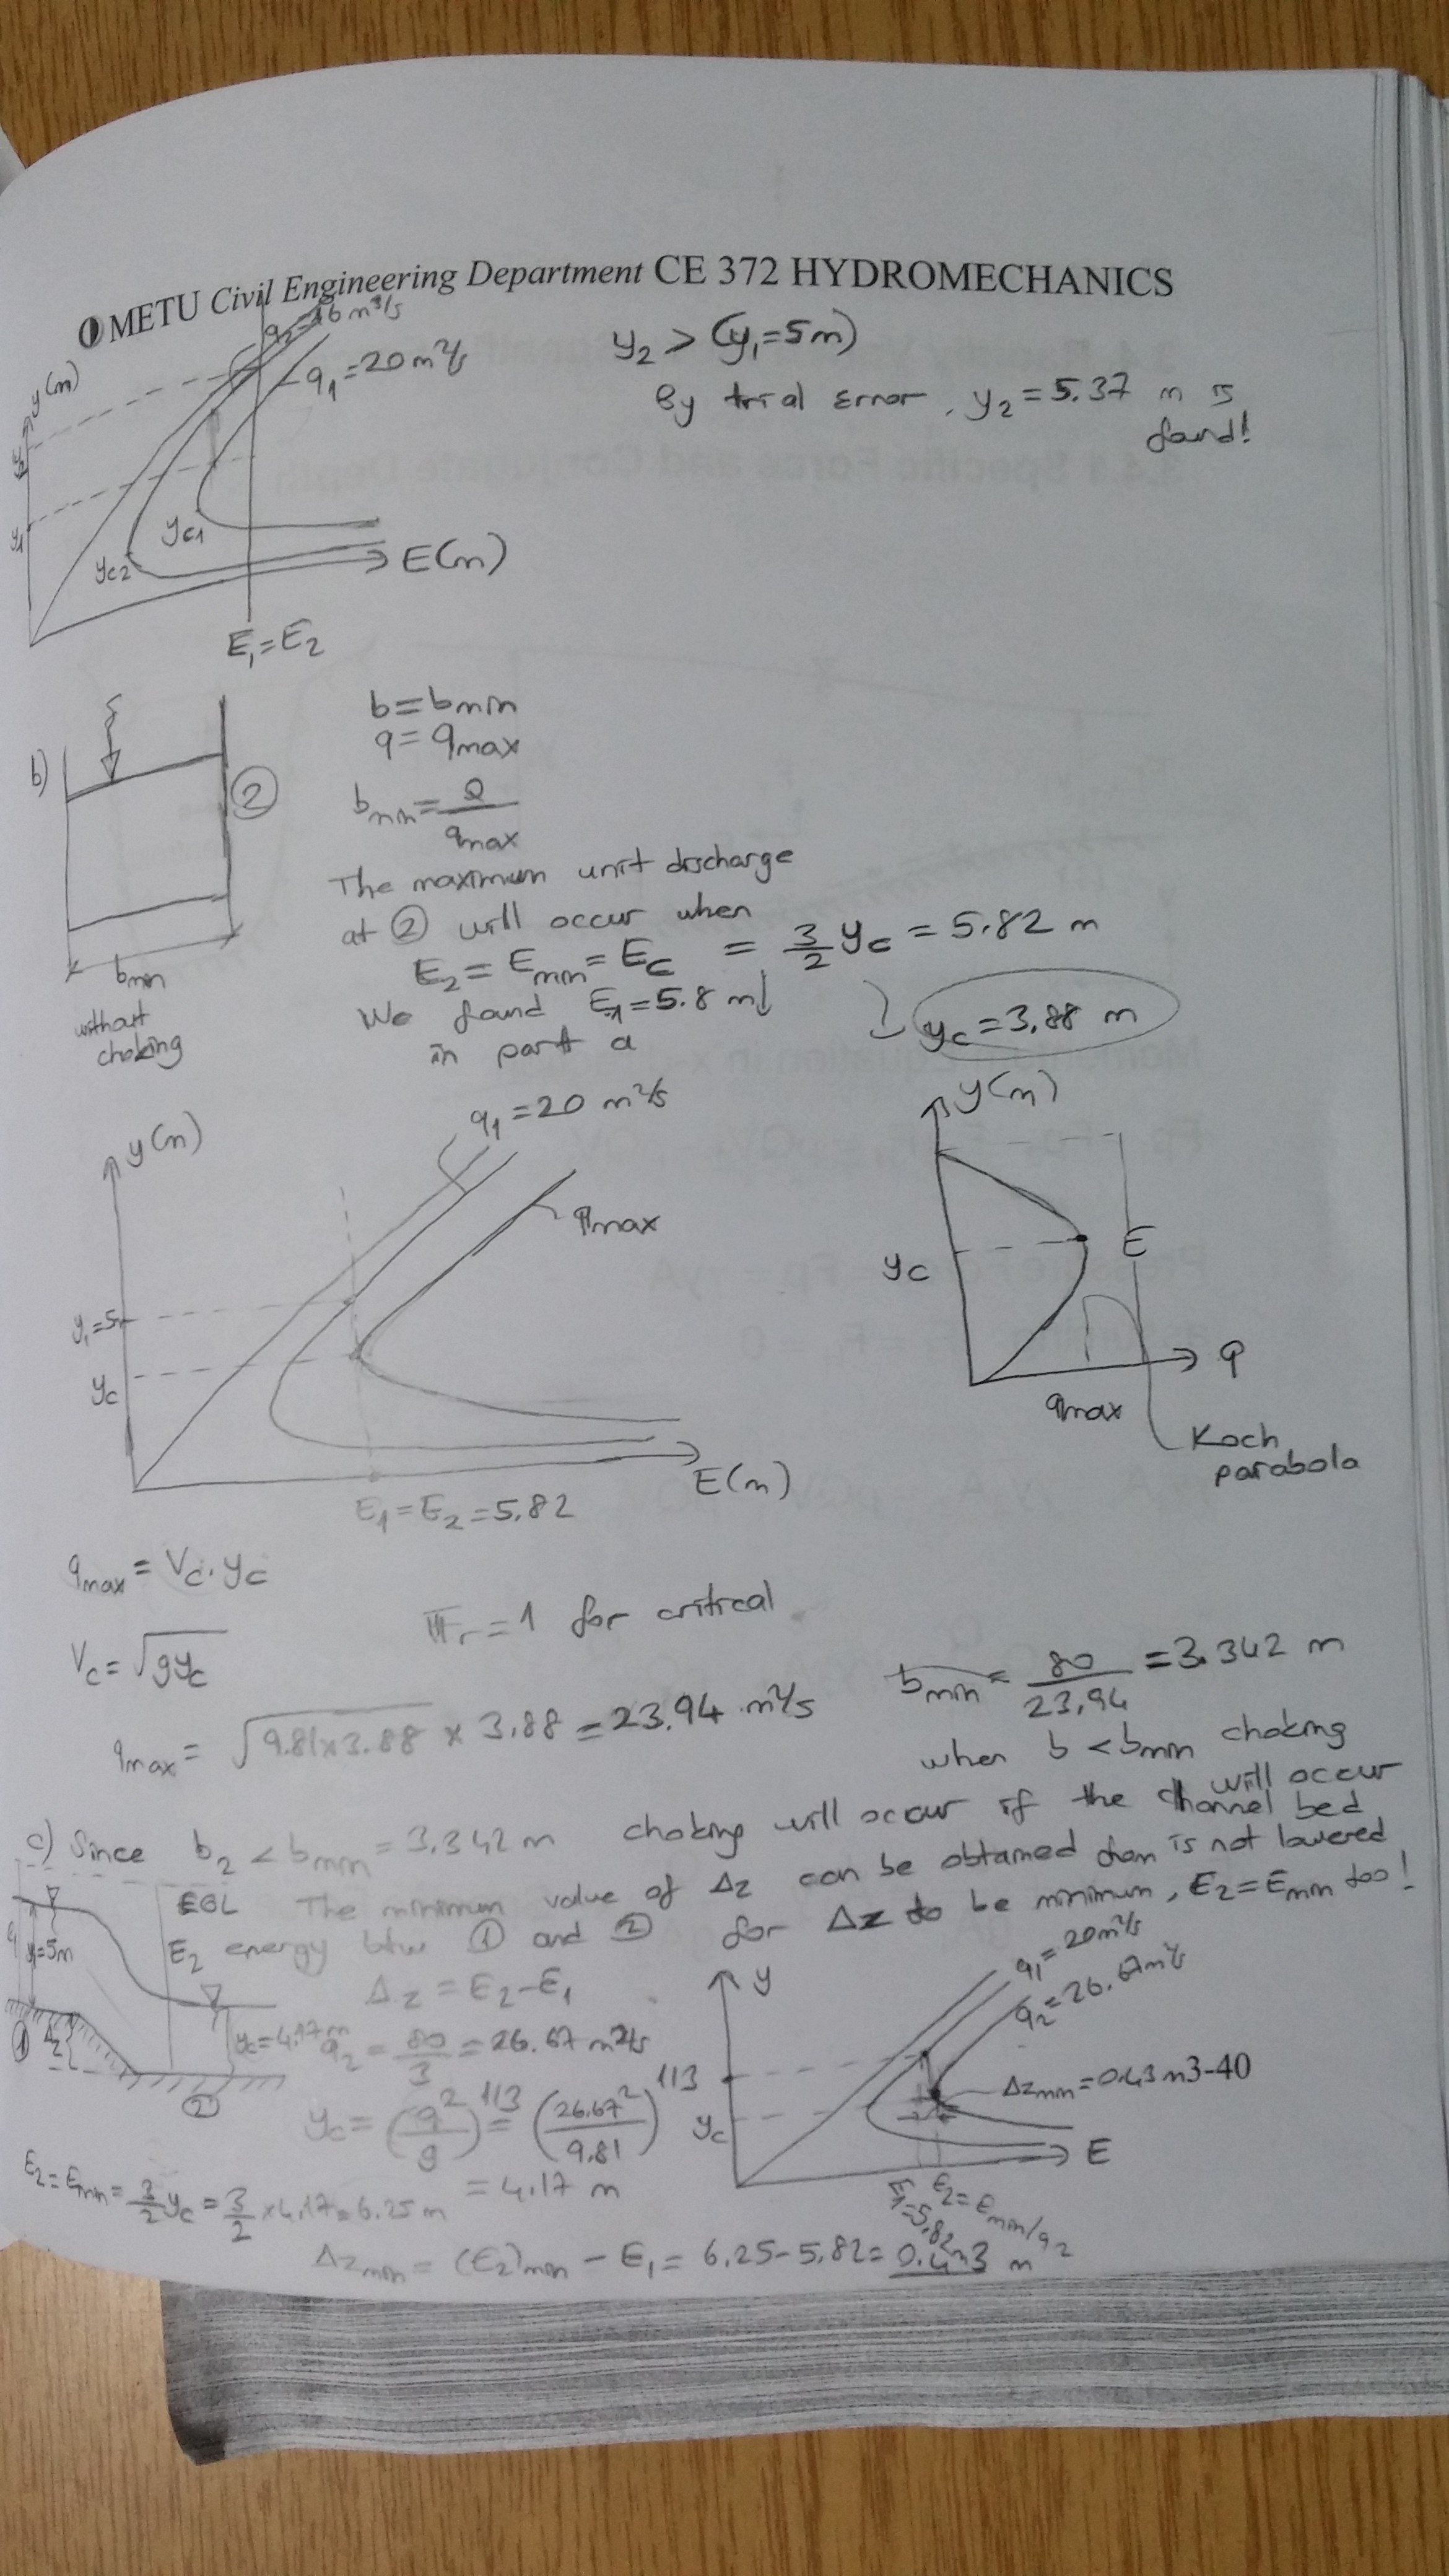 METU Civil Engineering Department CE 372 HYDROMECHANICS
q2=16 m³/s
q1=20 m²/s
y(m)
y2
y1
yc1
yc2
E(m)
E1=E2
y2 > (y1=5m)
By trial error, y2=5.37 m is
found!
b)
2
bmin
without
choking
b=bmin
q=qmax
bmin=Q/qmax
The maximum unit discharge
at 2 will occur when
E2=Emin=Ec = 3/2 yc = 5.82 m
We found E1=5.8 m
in part a
yc=3.88 m
q1=20 m²/s
y(m)
qmax
y1=5
yc
E(m)
E1=E2=5.82
y(m)
yc
E
q
qmax
Koch
parabola
qmax = Vc.yc
Vc=√gyc
Fr=1 for critical
qmax = √9.81x3.88 x 3.88 = 23.94 m²/s
bmin = 80/23.94 = 3.342 m
when b<bmin choking
will occur
c) Since b2<bmin=3.342m choking will occur if the channel bed
is not lowered
The minimum value of Δz can be obtained from
E2 energy btw 1 and 2 for Δz to be minimum, E2=Emin too!
EGL
y1=5m
1
Δz
yc=4.17m
2
Δz = E2-E1
q2 = 80/3 = 26.67 m²/s
yc = (q²/g)^1/3 = (26.67²/9.81)^1/3
= 4.17 m
E2=Emin=3/2 yc = 3/2 x4.17=6.25m
Δzmin = (E2)min - E1 = 6.25-5.82= 0.43 m
y
q1=20m²/s
q2=26.67m²/s
Δzmin=0.43m
yc
E
E1=5.82m
E2=Emin/q2
3-40